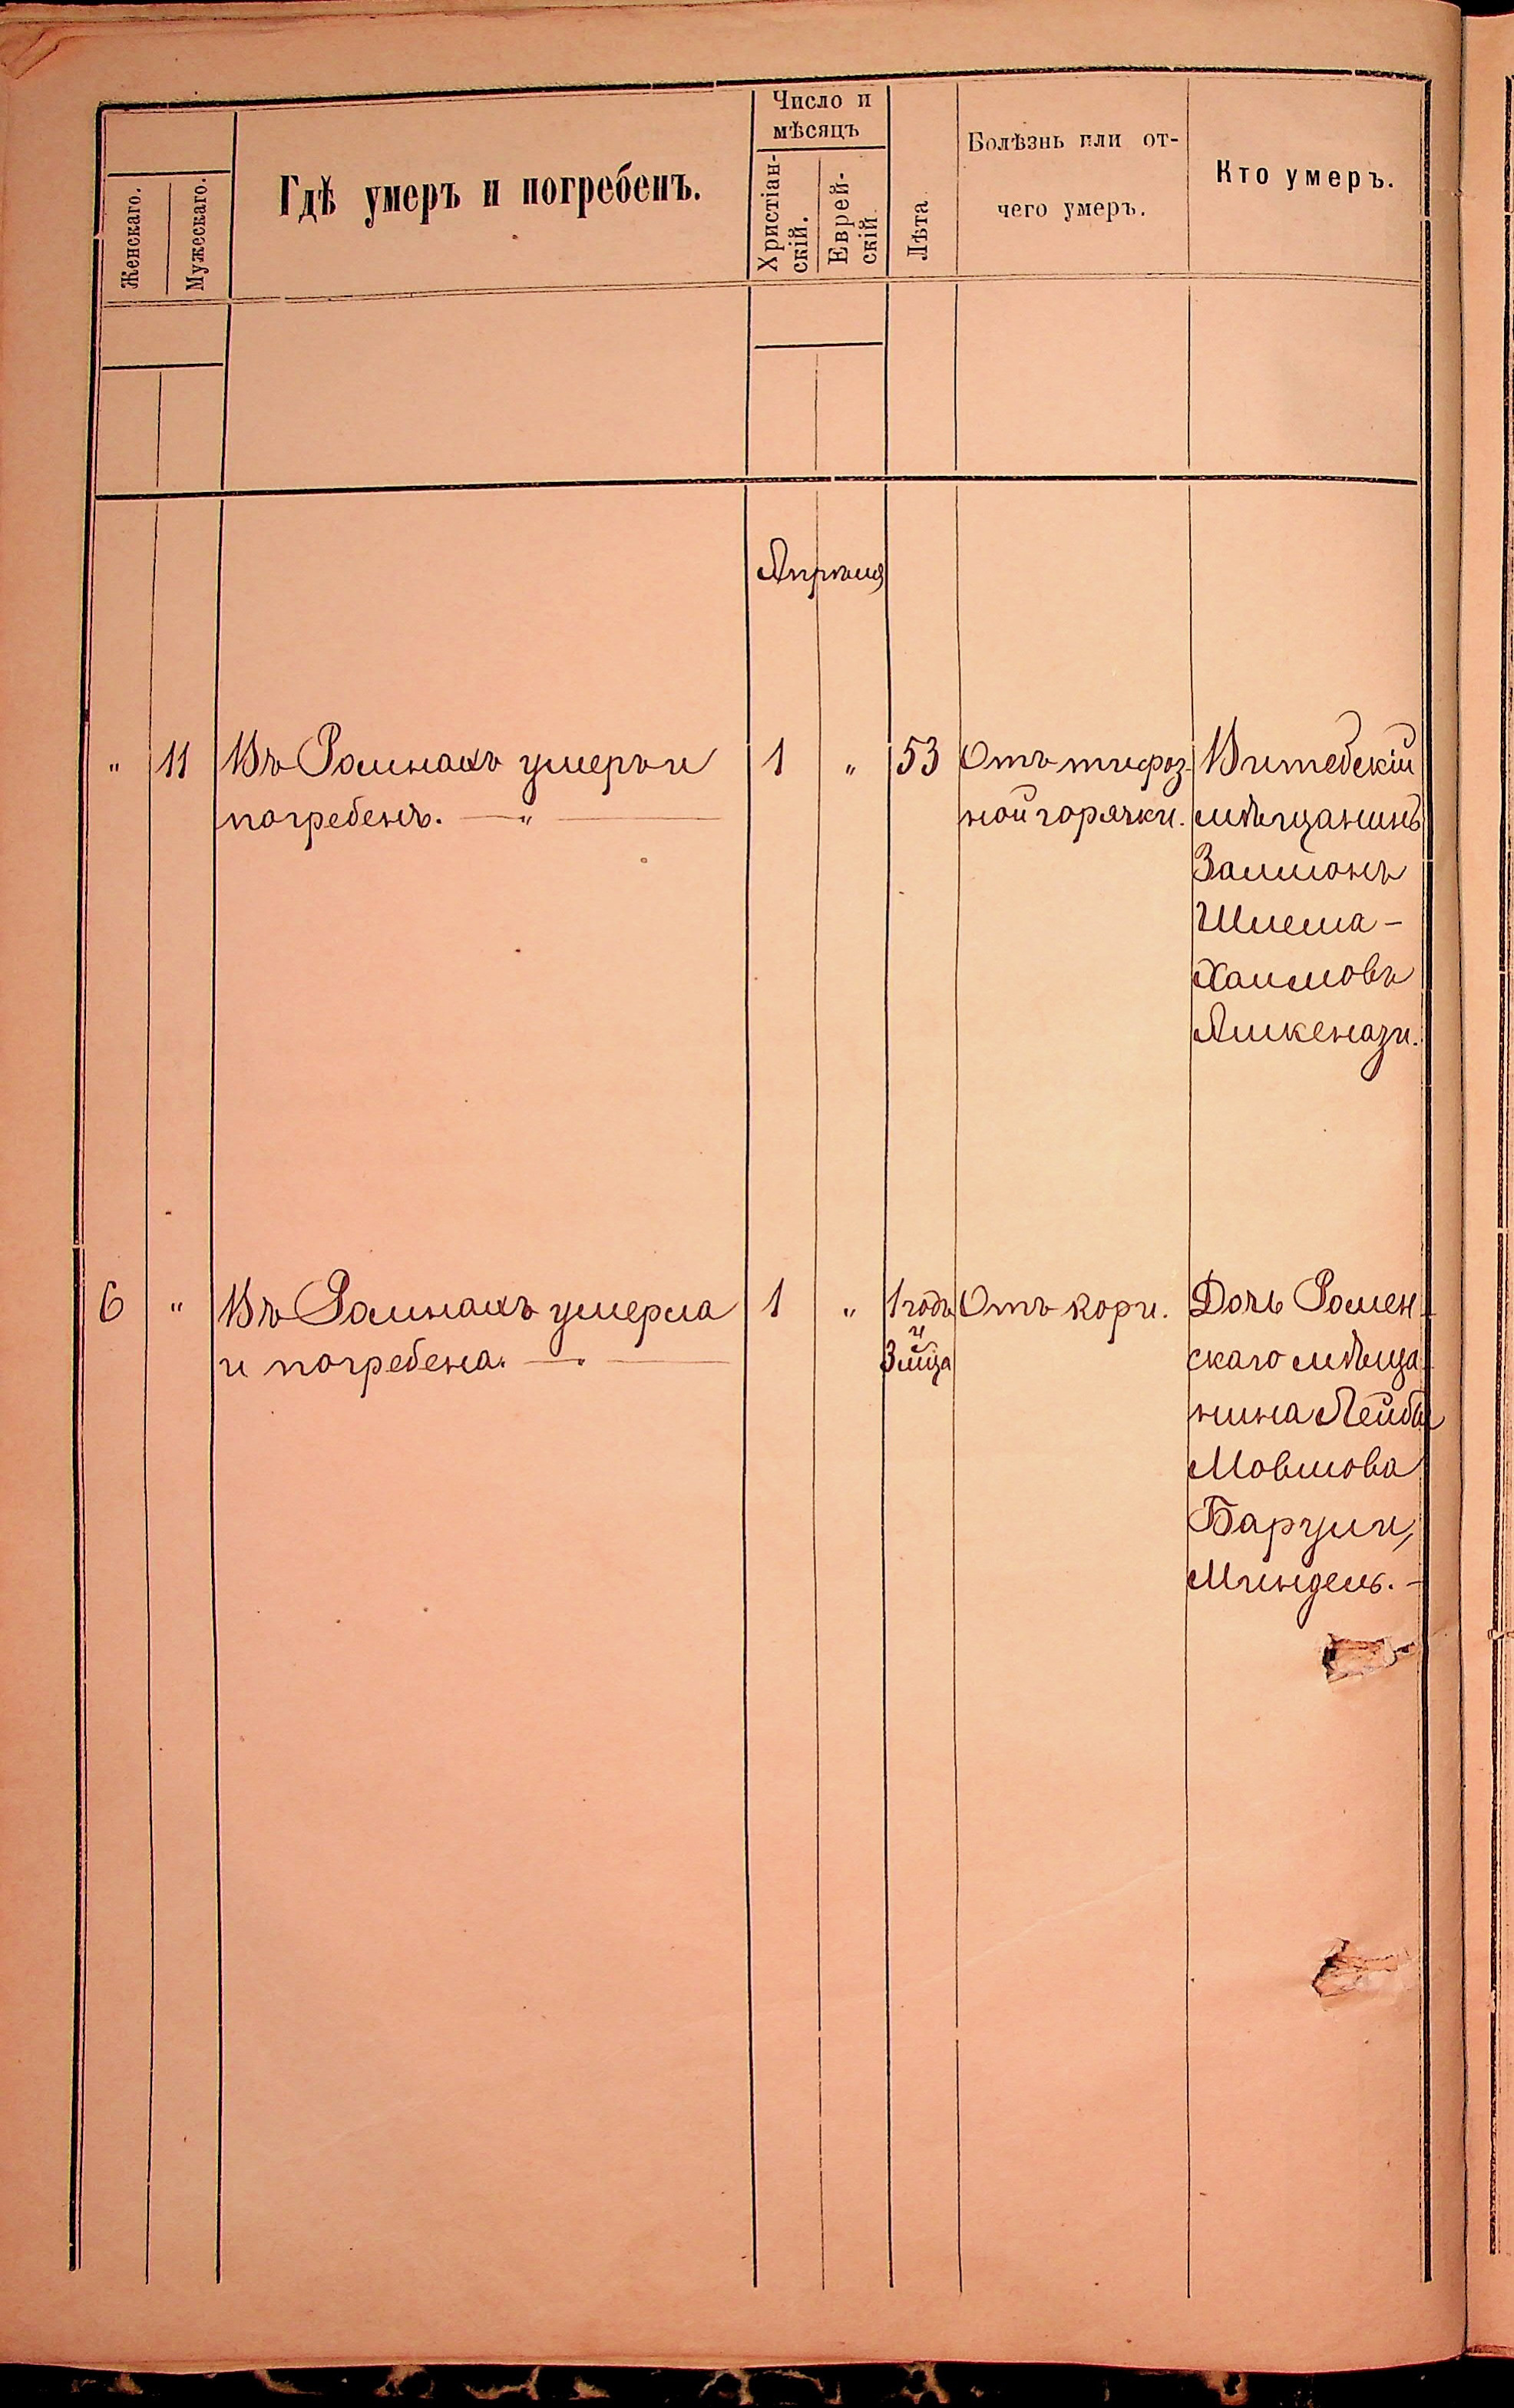 Женскаго.
Мужескаго.
Гдѣ умеръ и погребенъ.
Число и
мѣсяцъ
Христіан-
скій.
Еврей-
скій.
Лѣта
Болѣзнь или от-
чего умеръ.
Кто умеръ.
Апрѣля
"
11
Въ Ромнахъ умеръ и
погребенъ. — " —
1
"
53
Отъ тифоз-
ной горячки.
Витебскій
мѣщанинъ
Залмонъ
Шлема-
Хаимовъ
Ашкенази.
6
"
Въ Ромнахъ умерла
и погребена. — " —
1
"
1 годъ
и
3 м͠ца
Отъ кори.
Дочь Ромен-
скаго мѣща-
нина Лейбы
Мовшова
Баруши,
Миндель. -